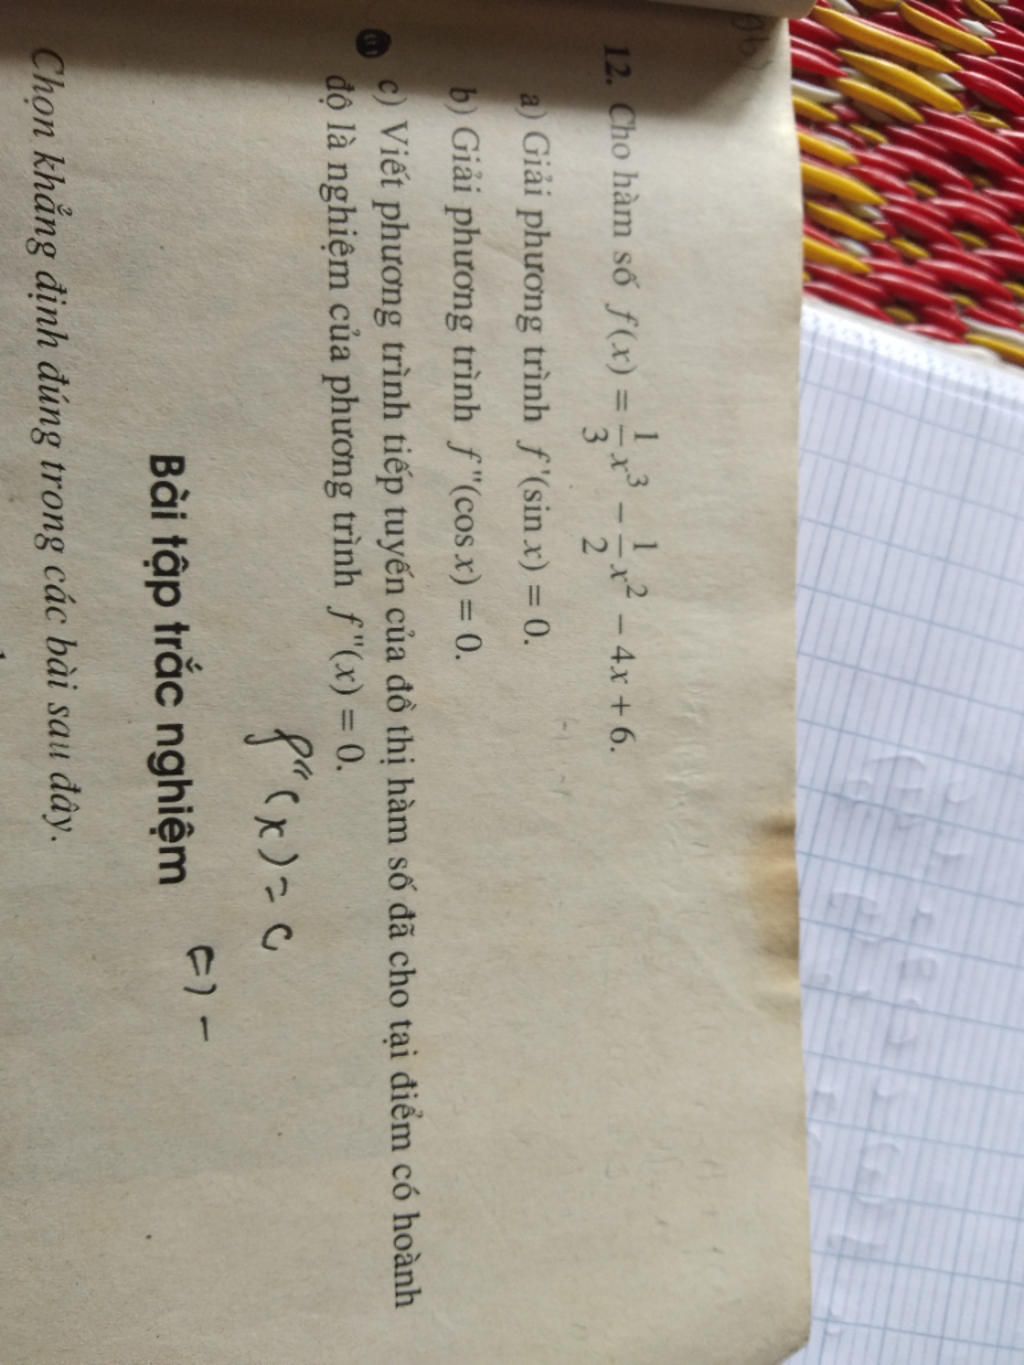 12. Cho hàm số f(x) = \frac{1}{3}x^3 - \frac{1}{2}x^2 - 4x + 6.
a) Giải phương trình f'(sin x) = 0.
b) Giải phương trình f''(cos x) = 0.
c) Viết phương trình tiếp tuyến của đồ thị hàm số đã cho tại điểm có hoành
độ là nghiệm của phương trình f''(x) = 0.
f''(x) = 
Bài tập trắc nghiệm
Chọn khẳng định đúng trong các bài sau đây.